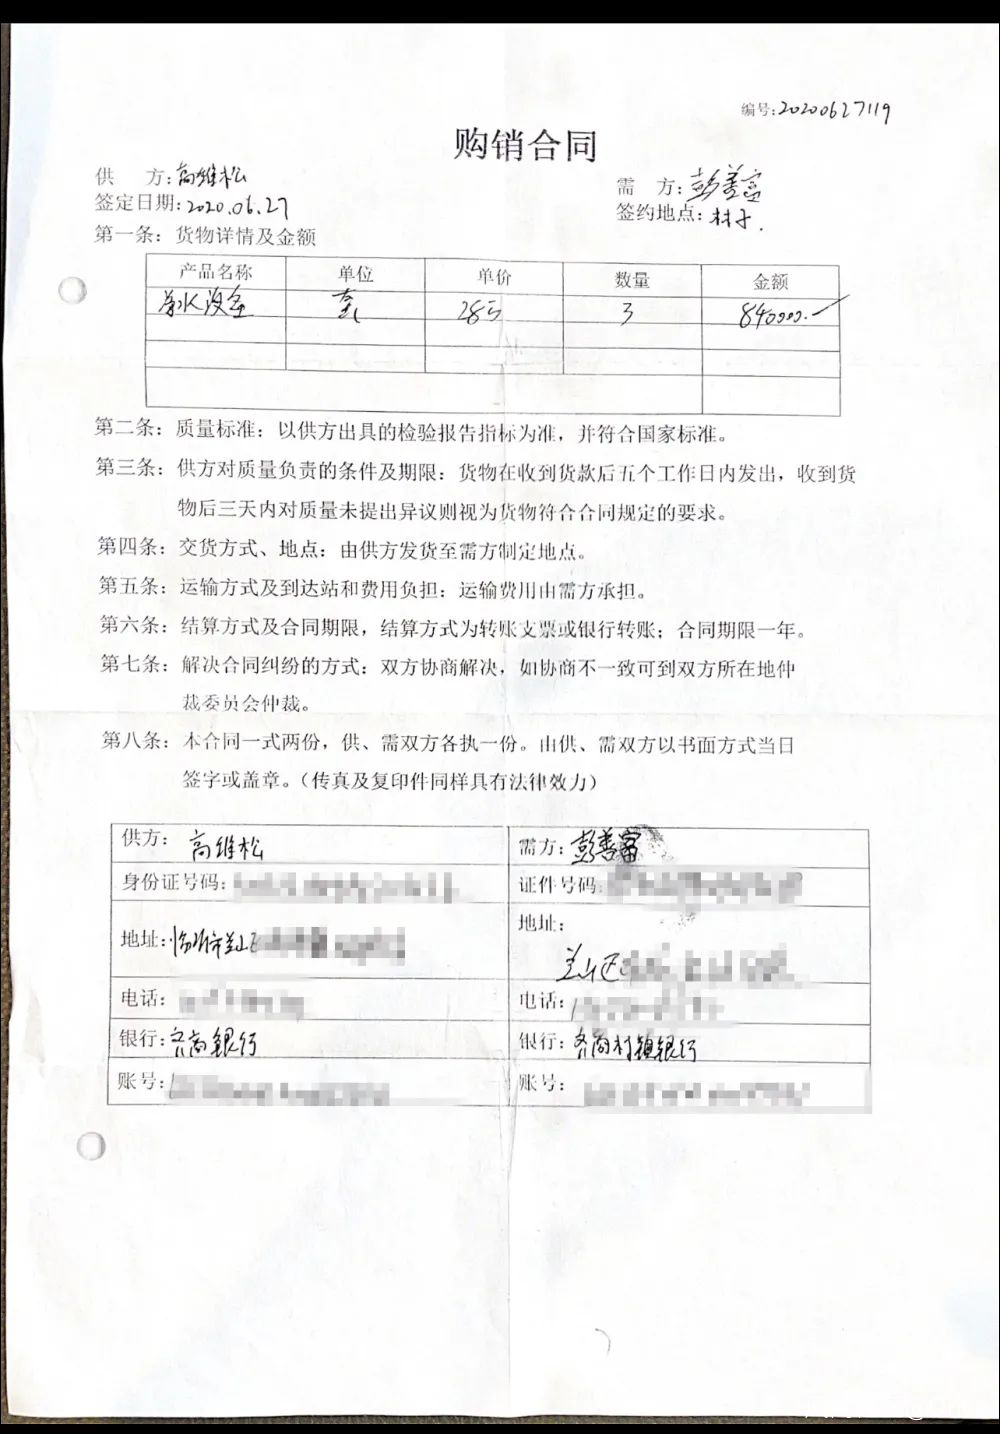 编号:20200627119
购销合同
供 方:高维松
需 方:彭善富
签定日期:2020.06.27
签约地点:村子.
第一条: 货物详情及金额
产品名称 单位 单价 数量 金额
净水设备 套 28万 3 840000.-
第二条: 质量标准: 以供方出具的检验报告指标为准, 并符合国家标准。
第三条: 供方对质量负责的条件及期限: 货物在收到货款后五个工作日内发出, 收到货
物后三天内对质量未提出异议则视为货物符合合同规定的要求。
第四条: 交货方式、地点: 由供方发货至需方制定地点。
第五条: 运输方式及到达站和费用负担: 运输费用由需方承担。
第六条: 结算方式及合同期限, 结算方式为转账支票或银行转账; 合同期限一年。
第七条: 解决合同纠纷的方式: 双方协商解决, 如协商不一致可到双方所在地仲
裁委员会仲裁。
第八条: 本合同一式两份, 供、需双方各执一份。由供、需双方以书面方式当日
签字或盖章。(传真及复印件同样具有法律效力)
供方: 高维松
需方: 彭善富
身份证号码:
证件号码:
地址: 临沂市兰山区
地址:
兰山区
电话:
电话:
银行: 齐商银行
银行: 齐商村镇银行
账号:
账号: